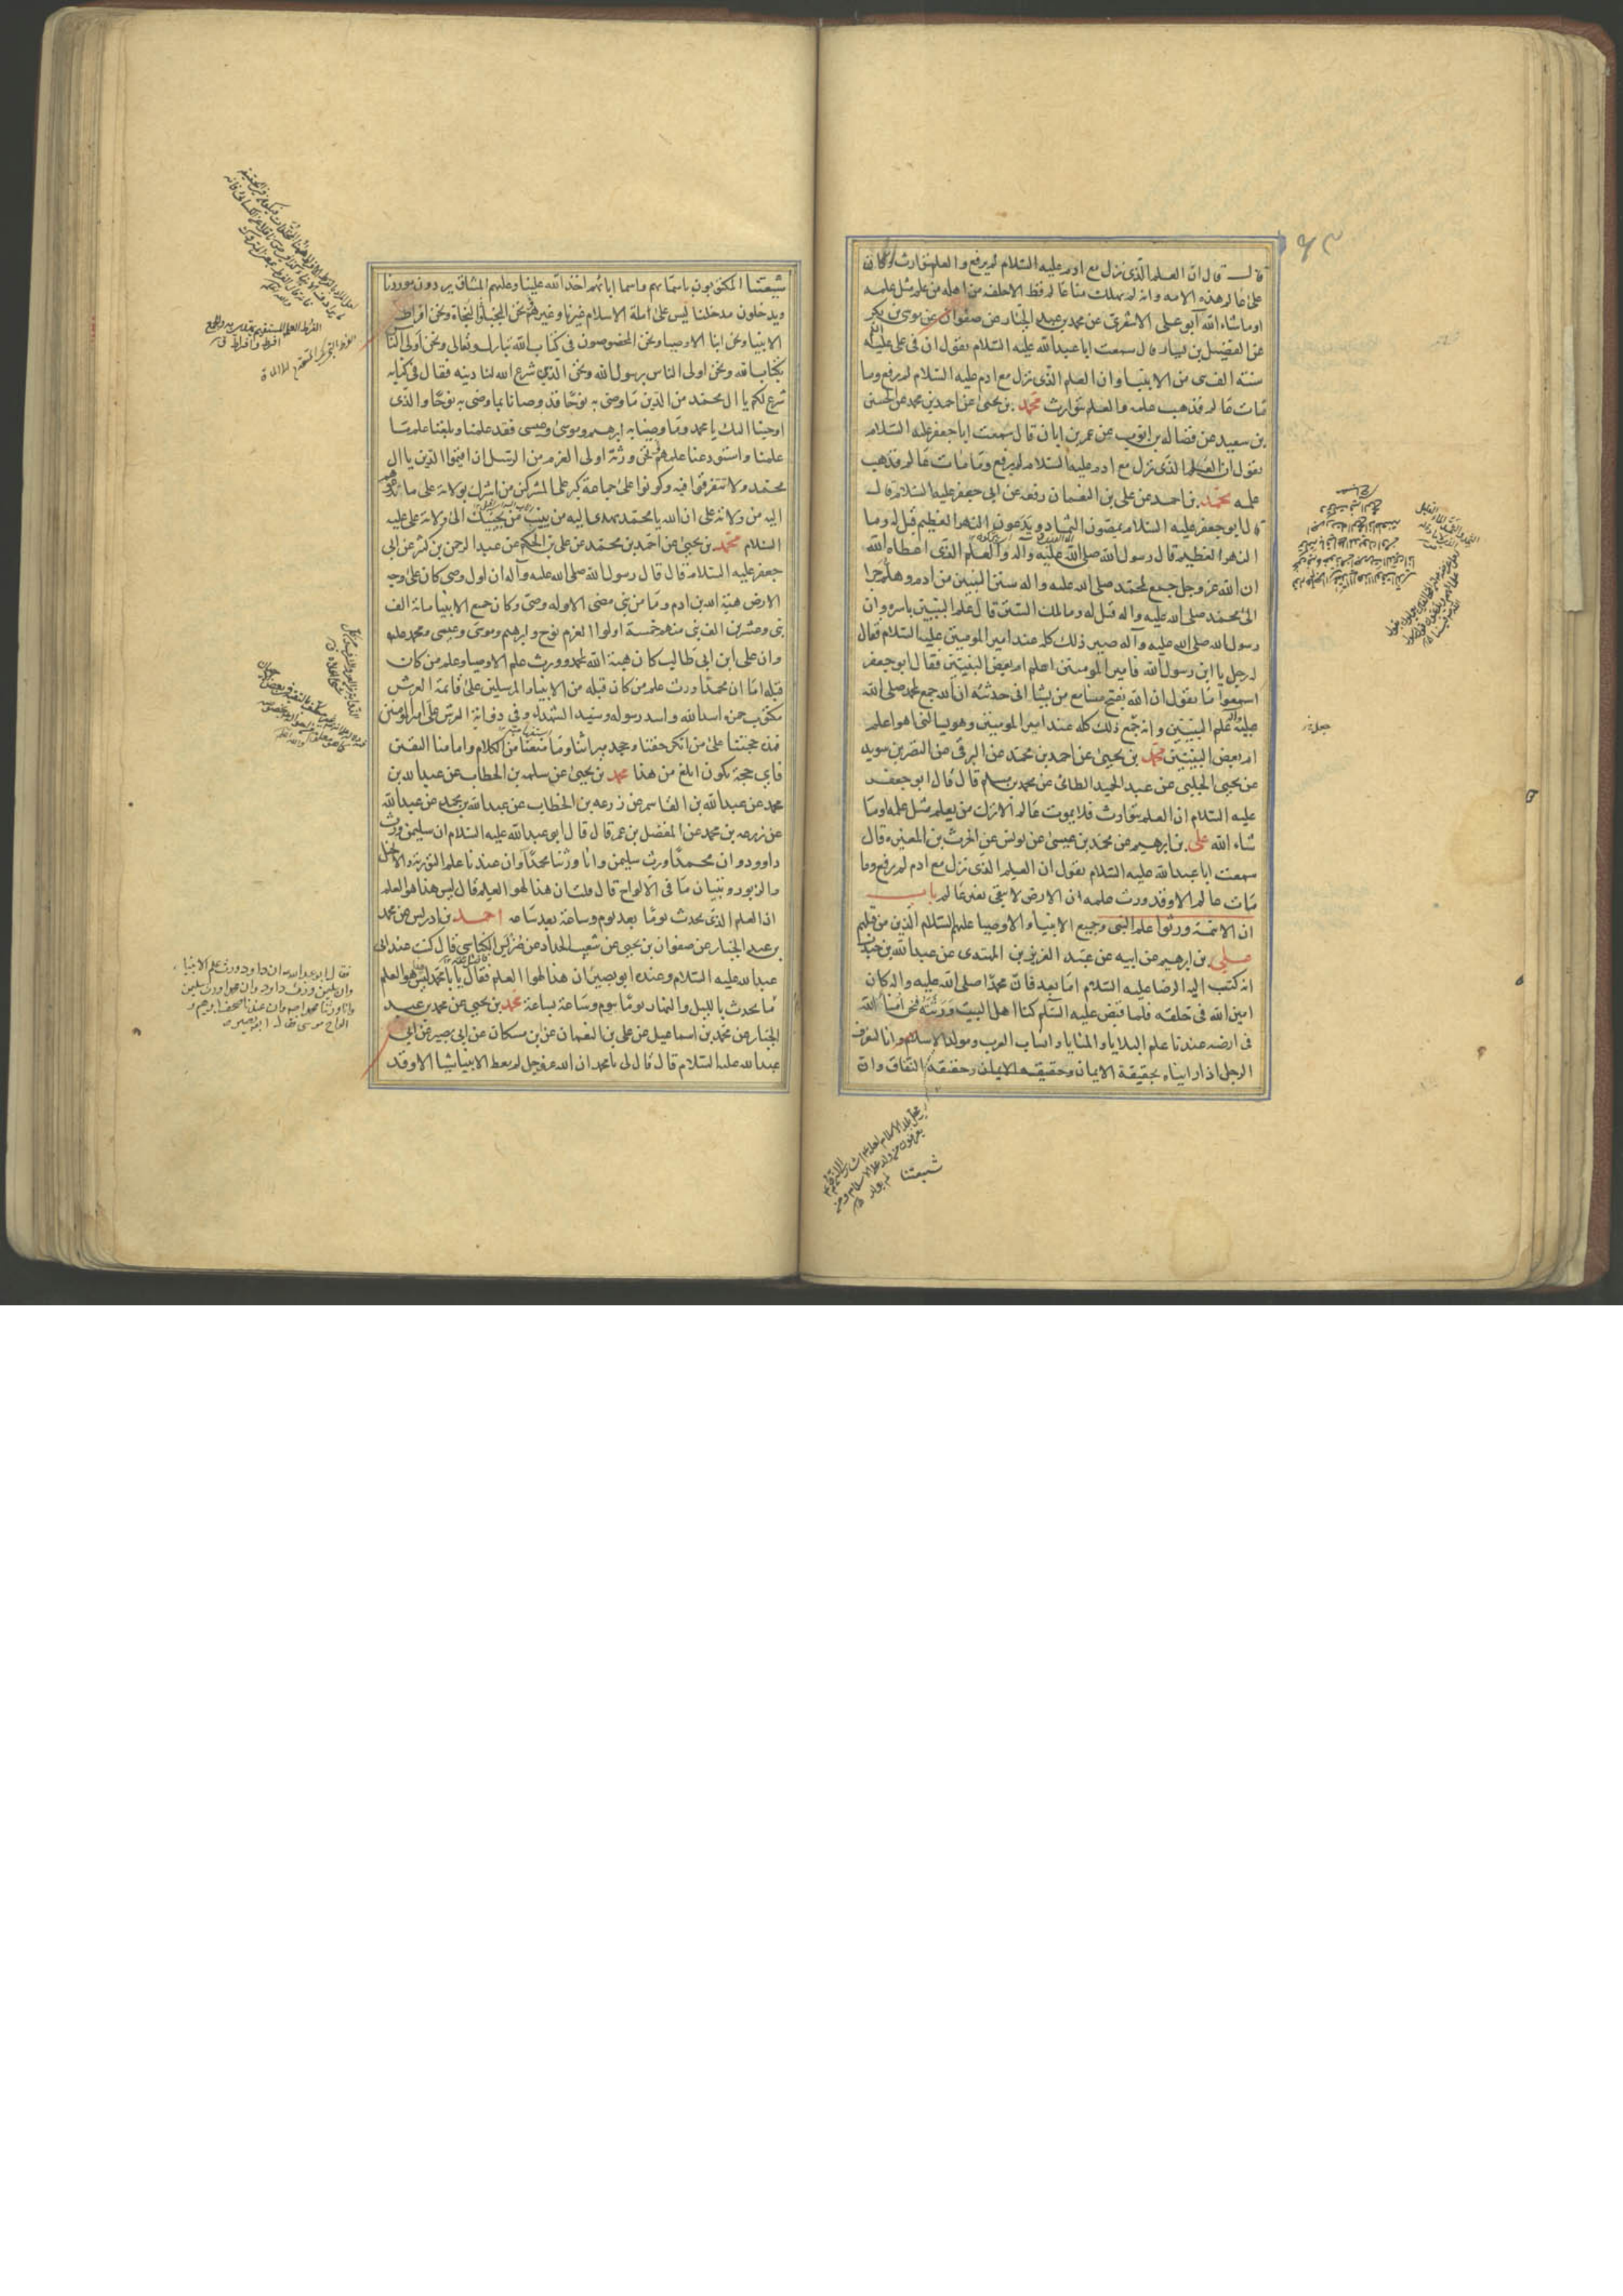 قال قال ان العلم الذي نزل مع ادم عليه السلام لم يرفع والعلم يتوارث وكان
على عالم هذه الامة وانه لم يهلك منا عالم قط الا خلفه من اهله من علم مثل علمه
او ما شاء الله ابو علي الاشعري عن محمد بن عبد الجبار عن صفوان عن موسى بن بكر
عن الفضيل بن يسار قال سمعت ابا عبد الله عليه السلام يقول ان في علي عليه
سنة الف نبي من الانبياء وان العلم الذي نزل مع ادم عليه السلام لم يرفع وما
مات عالم فذهب علمه والعلم يتوارث محمد بن يحيى عن احمد بن محمد عن الحسين
بن سعيد عن فضالة بن ايوب عن عمر بن ابان قال سمعت ابا جعفر عليه السلام
يقول ان العلم الذي نزل مع ادم عليه السلام لم يرفع وما مات عالم فذهب
علمه محمد بن احمد عن علي بن النعمان رفعه عن ابي جعفر عليه السلام قال
قال ابو جعفر عليه السلام يمصون الثماد ويدعون النهر العظيم قيل له وما
النهر العظيم قال رسول الله صلى الله عليه وآله والعلم الذي اعطاه الله
ان الله عز وجل جمع لمحمد صلى الله عليه واله سنن النبيين من ادم وهلم جرا
الى محمد صلى الله عليه واله قيل له وما تلك السنن قال علم النبيين باسره وان
رسول الله صلى الله عليه وآله صير ذلك كله عند امير المومنين عليه السلام فقال
له رجل يا ابن رسول الله فامير المومنين اعلم ام بعض النبيين فقال ابو جعفر
اسمعوا ما يقول ان الله يفتح مسامع من يشا اني حدثته ان الله جمع لمحمد صلى الله
عليه وآله علم النبيين وانه جمع ذلك كله عند امير المومنين وهو يسالني اهو اعلم
ام بعض النبيين محمد بن يحيى عن احمد بن محمد عن البرقي عن النضر بن سويد
عن يحيى الحلبي عن عبد الحميد الطائي عن محمد بن مسلم قال قال ابو جعفر
عليه السلام ان العلم يتوارث فلا يموت عالم الا ترك من يعلم مثل علمه او ما
شاء الله علي بن ابرهيم عن محمد بن عيسى عن يونس عن الحرث بن المغيرة قال
سمعت ابا عبد الله عليه السلام يقول ان العلم الذي نزل مع ادم لم يرفع وما
مات عالم الا وقد ورث علمه ان الارض لا تبقى بغير عالم باب
ان الائمة ورثوا علم النبي وجميع الانبياء والاوصيا عليهم السلام الذين من قبلهم
علي بن ابرهيم عن ابيه عن عبد العزيز بن المهتدي عن عبد الله بن جندب
انه كتب اليه الرضا عليه السلام اما بعد فان محمدا صلى الله عليه واله كان
امين الله في خلقه فلما قبض عليه السلم كنا اهل البيت ورثته فنحن امناء الله
في ارضه عندنا علم البلايا والمنايا وانساب العرب ومولد الاسلام وانا لنعرف
الرجل اذا رايناه بحقيقة الايمان وحقيقة النفاق وان
شيعتنا
شيعتنا المكتوبون باسمائهم واسما ابائهم اخذ الله علينا وعليهم الميثاق يردون موردنا
ويدخلون مدخلنا ليس على ملة الاسلام غيرنا وغيرهم نحن النجباء النجاة ونحن افراط
الانبيا ونحن ابنا الاوصيا ونحن المخصوصون في كتاب الله تبارك وتعالى ونحن اولى الناس
بكتاب الله ونحن اولى الناس برسول الله ونحن الذي شرع الله لنا دينه فقال في كتابه
شرع لكم يا ال محمد من الدين ما وصى به نوحا قد وصانا بما وصى به نوحا والذي
اوحينا اليك يا محمد وما وصينا به ابرهيم وموسى وعيسى فقد علمنا وبلغنا علم ما
علمنا واستودعنا علمهم نحن ورثة اولي العزم من الرسل ان اقيموا الدين يا ال
محمد ولا تتفرقوا فيه وكونوا على جماعة كبر على المشركين من اشرك بولاية علي ما تدعوهم
اليه من ولاية علي ان الله يا محمد يهدي اليه من ينيب من يجيبك الى ولاية علي عليه
السلام محمد بن يحيى عن احمد بن محمد عن علي بن الحكم عن عبد الرحمن بن كثير عن ابي
جعفر عليه السلام قال قال رسول الله صلى الله عليه وآله ان اول وصي كان على وجه
الارض هبة الله بن ادم وما من نبي مضى الا وله وصي وكان جميع الانبيا مائة الف
نبي وعشرين الف نبي منهم خمسة اولوا العزم نوح وابرهيم وموسى وعيسى ومحمد عليهم
وان علي ابن ابي طالب كان هبة الله لمحمد وورث علم الاوصيا وعلم من كان
قبله اما ان محمدا ورث علم من كان قبله من الانبياء والمرسلين على قائمة العرش
مكتوب حمزة اسد الله واسد رسوله وسيد الشهداء وفي ذوابة العرش علي امير المومنين
فهذه حجتنا على من انكر حقنا وجحد ميراثنا وما منعنا من الكلام وامامنا اليقين
فاي حجة تكون ابلغ من هذا محمد بن يحيى عن سلمه بن الخطاب عن عبد الله بن
محمد عن عبد الله بن القاسم عن زرعه بن الخطاب عن عبد الله بن محمد عن عبد الله
عن زرعه بن محمد عن المفضل بن عمر قال قال ابو عبد الله عليه السلام ان سليمن ورث
داوود وان محمدا ورث سليمن وانا ورثنا محمدا وان عندنا علم التورية والانجيل
والزبور وتبيان ما في الالواح قال قلت ان هذا لهو العلم قال ليس هذا هو العلم
ان العلم الذي يحدث يوما بعد يوم وساعة بعد ساعه احمد بن ادريس عن محمد
بن عبد الجبار عن صفوان بن يحيى عن شعيب الحداد عن ضريس الكناسي قال كنت عند ابي
عبد الله عليه السلام وعنده ابو بصير ان هذا لهو العلم فقال يا با محمد ليس هو العلم
ما يحدث بالليل والنهار يوما بيوم وساعة بساعة محمد بن يحيى عن محمد بن عبد
الجبار عن محمد بن اسماعيل عن علي بن النعمان عن ابن مسكان عن ابي بصير عن ابي
عبد الله عليه السلام قال قال لي يا محمد ان الله عز وجل لم يعط الانبيا شيا الا وقد
فقال ابو عبد الله ان داود ورث علم الانبياء
وان سليمن ورث داود وان محمدا ورث سليمن
وانا ورثنا محمدا وان عندنا صحف ابرهيم و
الواح موسى فقال ابو بصير